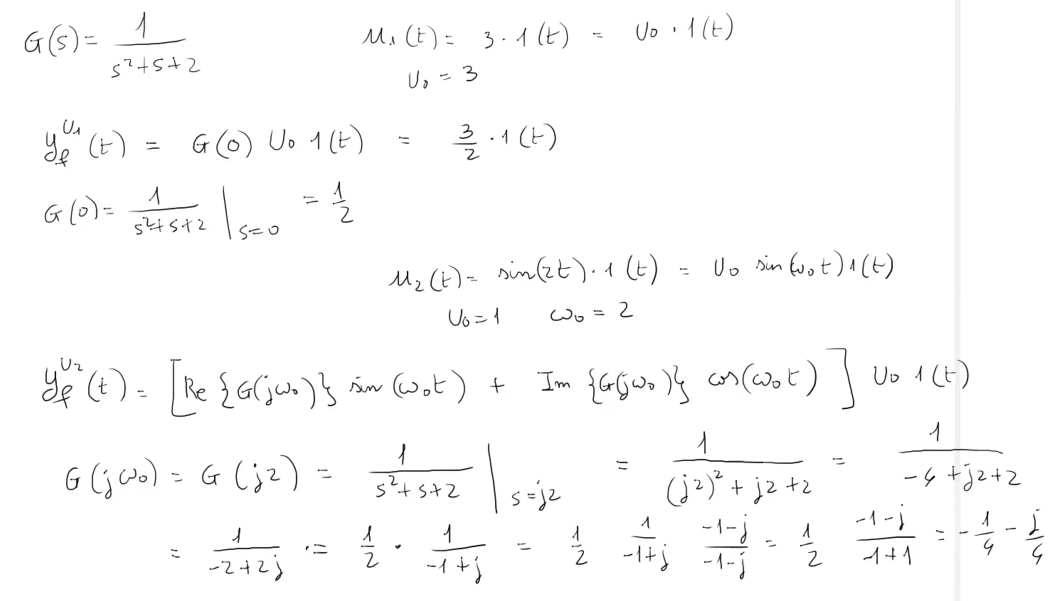 G(s) = 1/(s²+s+2)    u₁(t) = 3·1(t) = U₀·1(t)
U₀ = 3
y_f^{U₁}(t) = G(0) U₀ 1(t) = 3/2 · 1(t)
G(0) = 1/(s²+s+2) |_{s=0} = 1/2
u₂(t) = sin(2t)·1(t) = U₀ sin(ω₀t)1(t)
U₀ = 1    ω₀ = 2
y_f^{U₂}(t) = [Re{G(jω₀)} sin(ω₀t) + Im{G(jω₀)} cos(ω₀t)] U₀ 1(t)
G(jω₀) = G(j2) = 1/(s²+s+2) |_{s=j2} = 1/((j2)²+j2+2) = 1/(-4+j2+2)
= 1/(-2+2j) ·= 1/2 · 1/(-1+j) = 1/2 1/(-1+j) (-1-j)/(-1-j) = 1/2 (-1-j)/(-1+1) = -1/4 - j/4